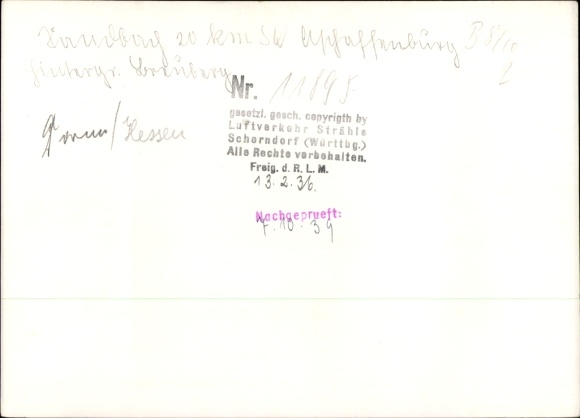 Sandbach 20 km SW Aschaffenburg B 8/10
Hintergr. Breuberg 2
Nr. 11895
gesetzl. gesch. copyrigth by
Luftverkehr Strähle
Schorndorf (Württbg.)
Alle Rechte vorbehalten.
Freig. d. R. L. M.
13.2.36.
/Hessen
Nachgeprueft:
7.10.39